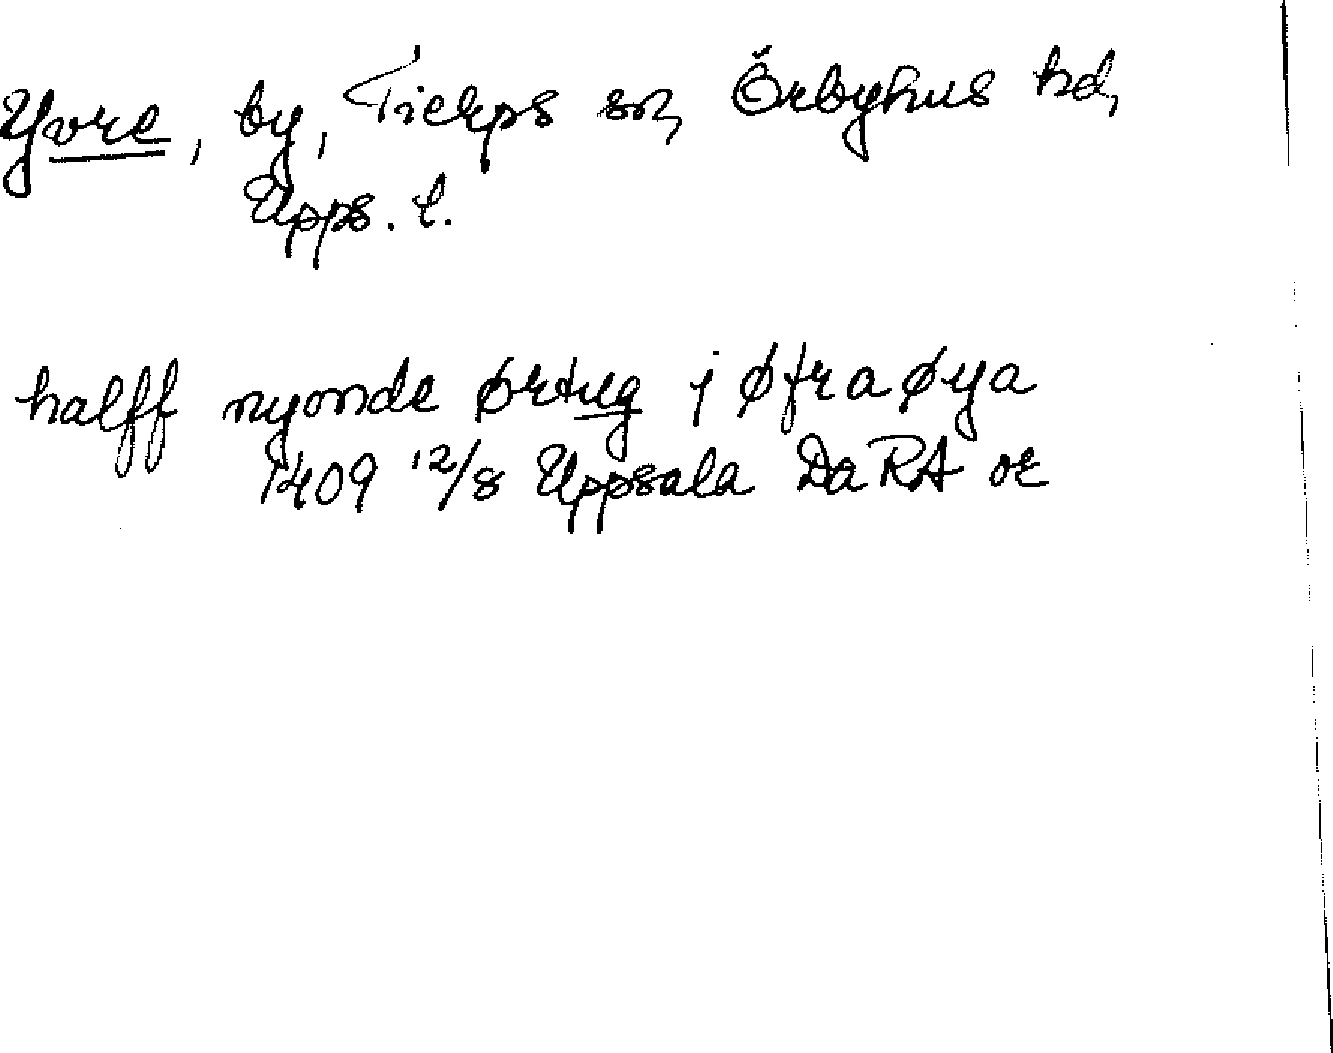 Yvre, by, Tierps sn, Örbyhus hd,
Upps. l.
halff nyonde ørtug j øfraøya
1409 12/8 Uppsala DaRA or